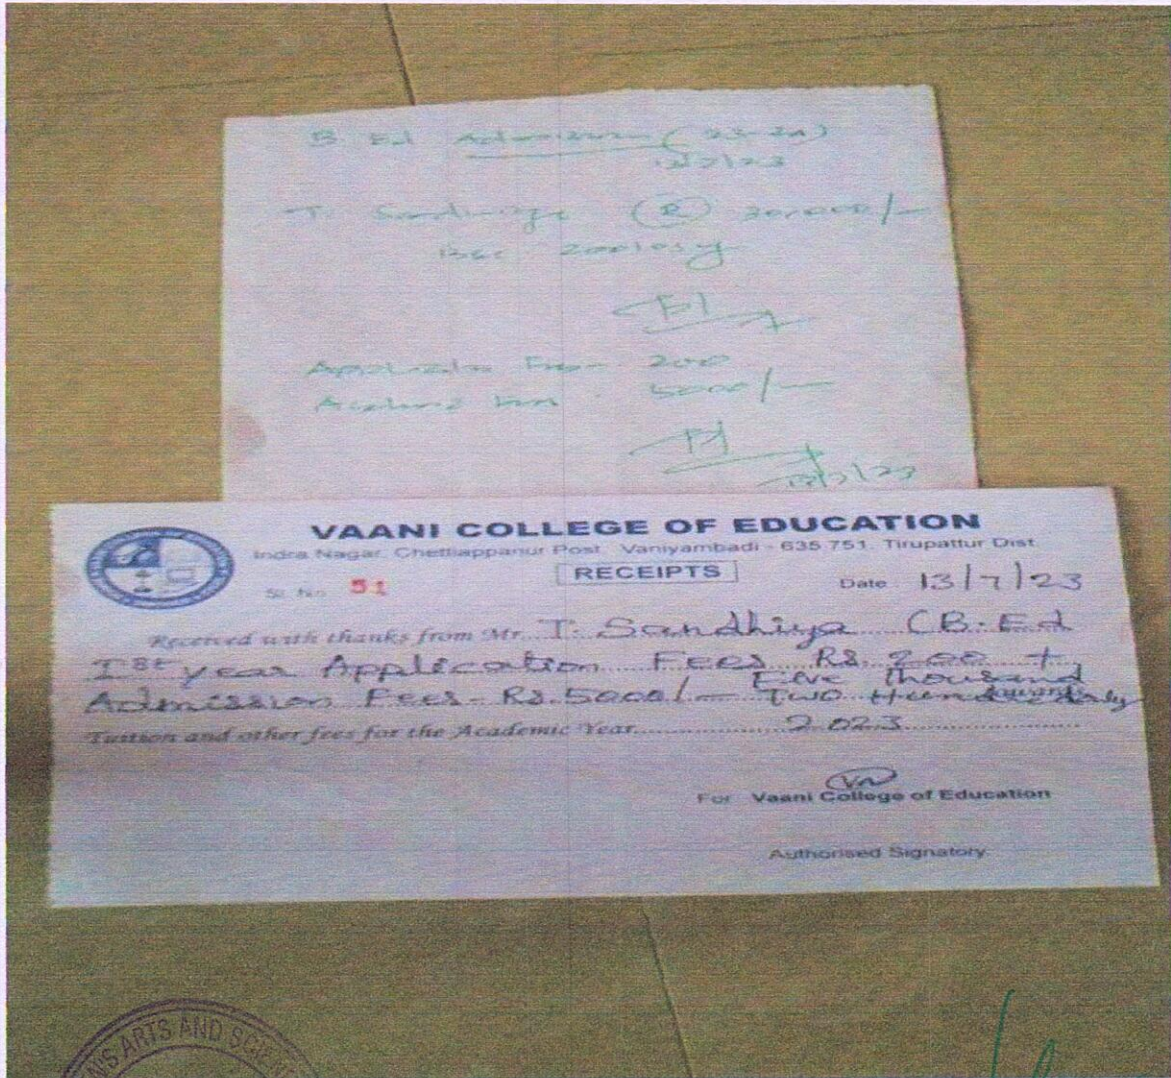 B Ed Admission (23-24)
13/7/23
T. Sandhiya (R) 20,000/-
Bsc Zoology
200
5000/-
13/7/23
VAANI COLLEGE OF EDUCATION
Indra Nagar, Chettiappanur Post, Vaniyambadi - 635 751. Tirupattur Dist.
RECEIPTS
Sl. No. 51
Date 13/7/23
Received with thanks from Mr. T. Sandhiya (B.Ed
Ist year Application Fees Rs. 200 +
Admission Fees - Rs. 5000/- Five Thousand
Two Hundred only
Tuition and other fees for the Academic Year 2023
For Vaani College of Education
Authorised Signatory
ARTS AND